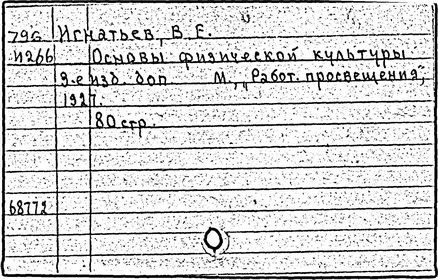 796 Игнатьев, В. Е.
И266 Основы физической культуры
2-е изд. доп М., "Работ. просвещения",
1927.
80 стр.
68772